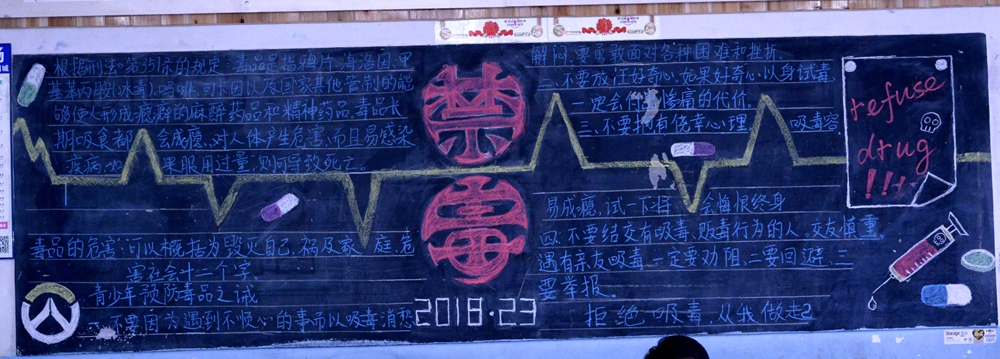 根据刑法第357条的规定，毒品是指鸦片、海洛因、甲
基苯丙胺(冰毒)、吗啡、可卡因以及国家其他管制的能
够使人形成瘾癖的麻醉药品和精神药品，毒品长
期吸食都 会成瘾，对人体产生危害，而且易感染
疾病 果服用过量，则可导致死亡。
毒品的危害：可以概括为毁灭自己、祸及家庭、危
害社会十二个字
青少年预防毒品之诫
一、不要因为遇到不顺心的事而以吸毒消愁
禁
毒
2018·23
解闷，要勇敢面对各种困难和挫折。
二、不要放任好奇心，如果好奇心以身试毒，
一定会付 惨痛的代价。
三、不要抱有侥幸心理， 吸毒容
易成瘾，试一下 会悔恨终身
四、不要结交有吸毒、贩毒行为的人，交友慎重。
遇有亲友吸毒，一定要劝阻，二要回避，三
要举报。
拒绝吸毒，从我做起
refuse
drug
!!!